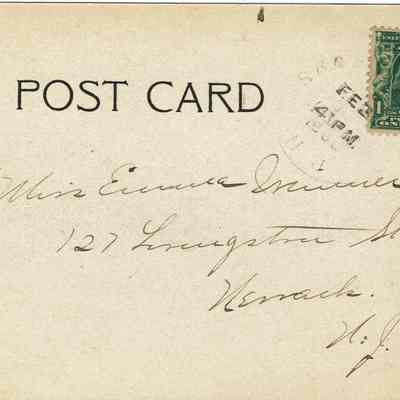 POST CARD
FEB
4 PM
Miss Emma
127 Livingston St
Newark.
N. J.